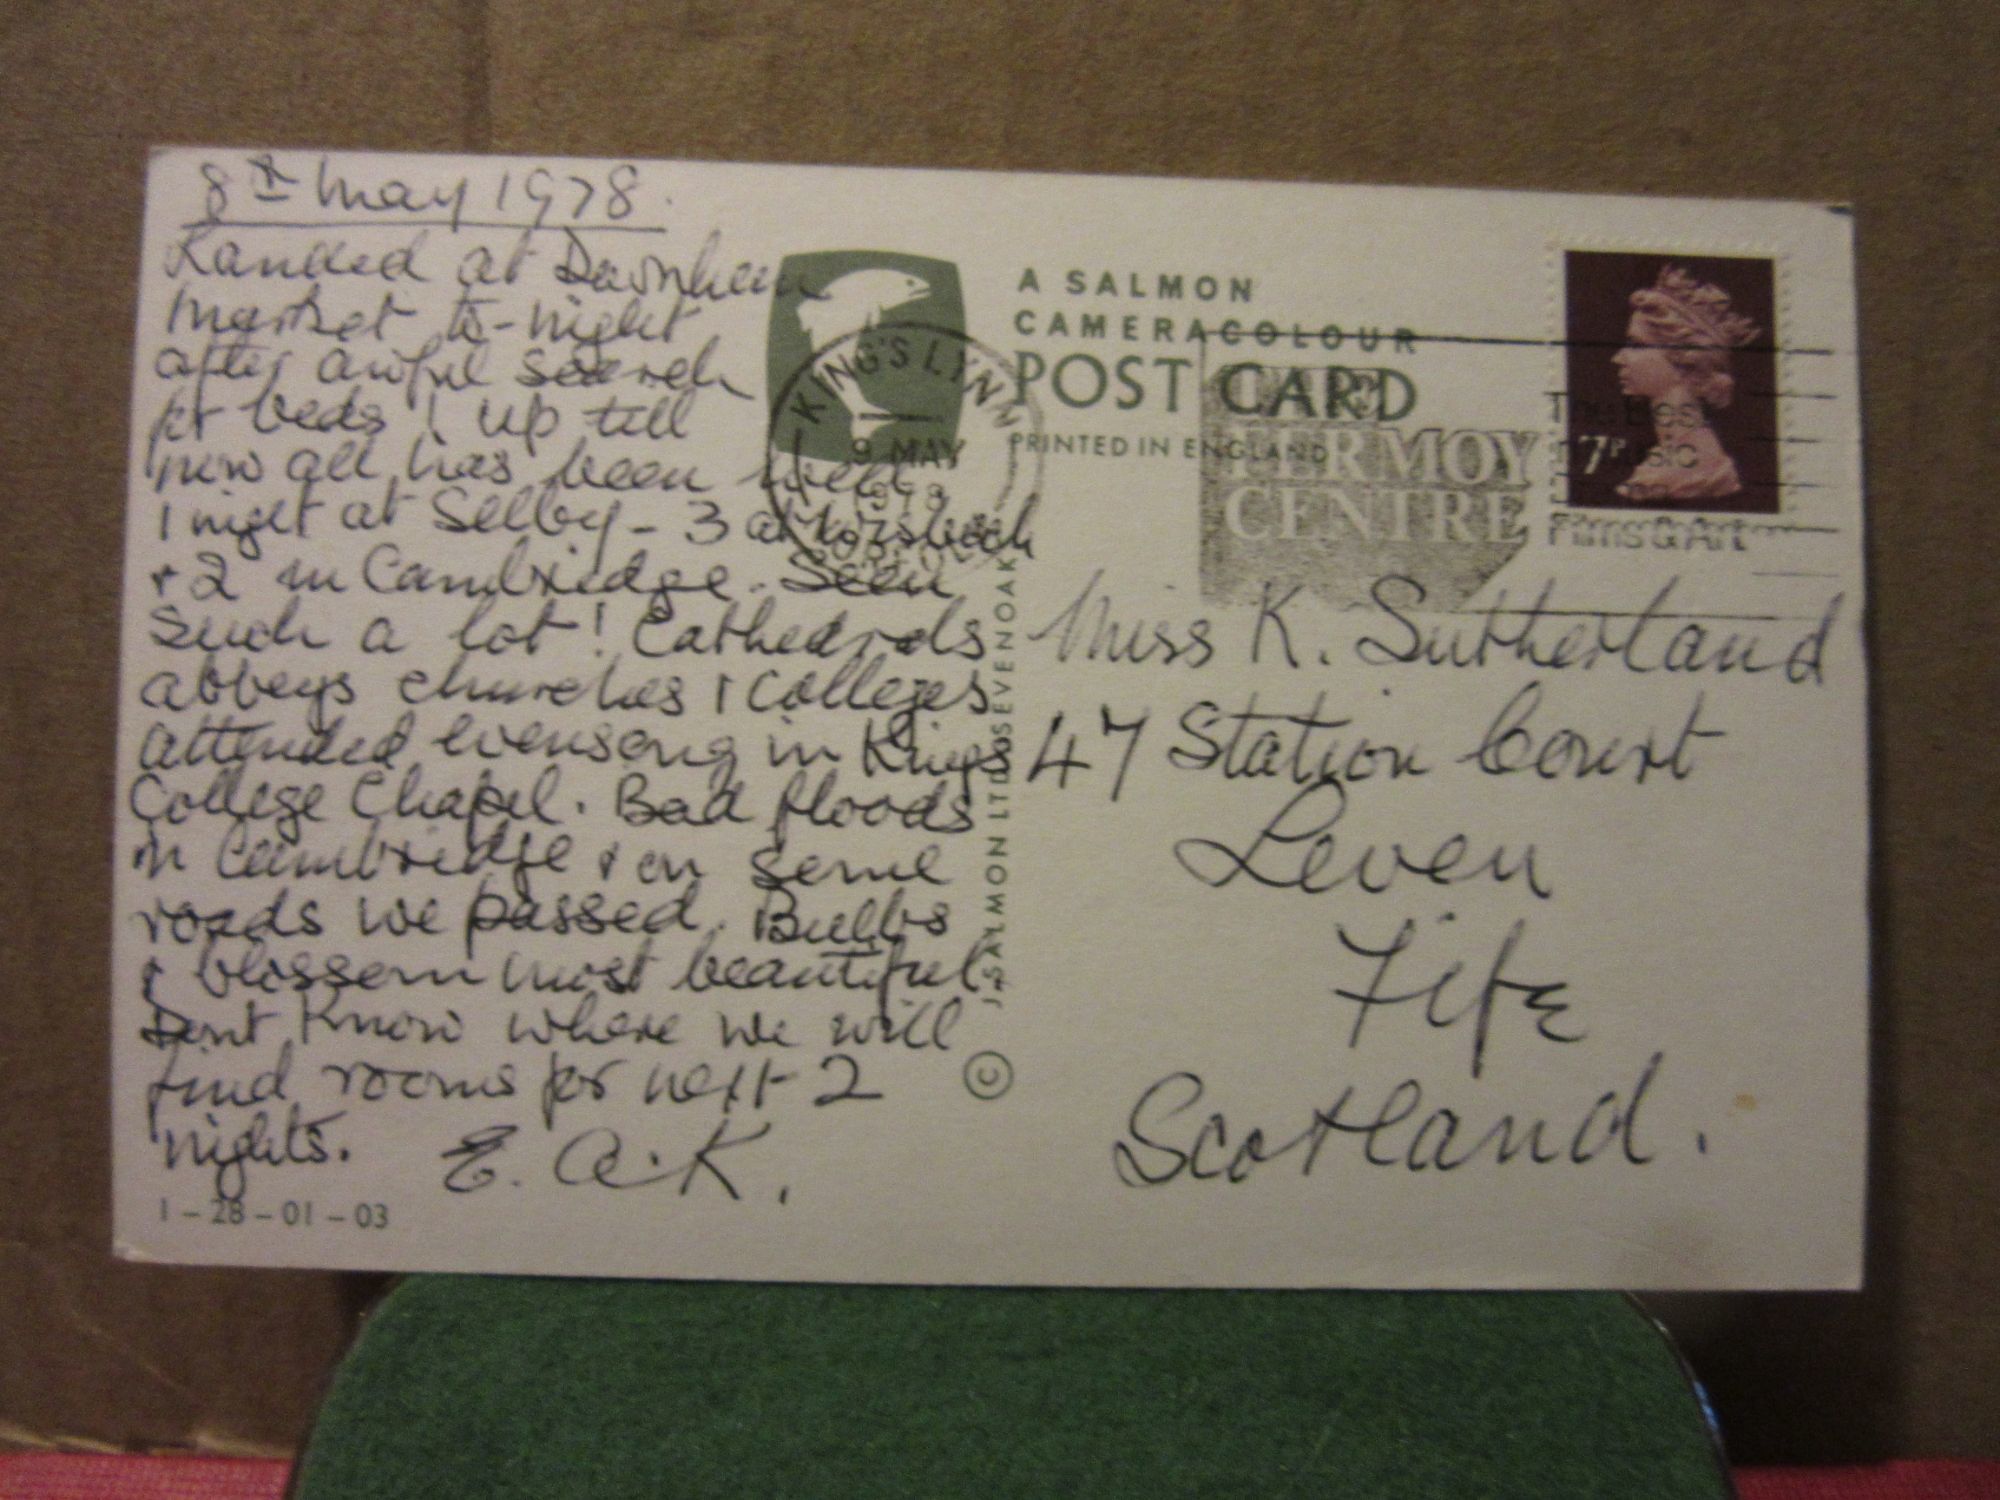 8th May 1978.
Landed at Downham
Market to-night
after awful search
for beds! Up till
now all has been well
1 night at Selby - 3 at
+ 2 in Cambridge. Seen
such a lot! Cathedrals
abbeys churches + colleges
attended evensong in Kings
College Chapel. Bad floods
in Cambridge + on some
roads we passed. Bulbs
+ blossom most beautiful
Dont know where we will
find rooms for next 2
nights. E. A. K.
1-28-01-03
A SALMON
CAMERACOLOUR
POST CARD
PRINTED IN ENGLAND
KING'S LYNN
9 MAY
1978
J. SALMON LTD SEVENOAKS
©
FERMOY
CENTRE
The Best
Films & Art
7P
Miss K. Sutherland
47 Station Court
Leven
Fife
Scotland.